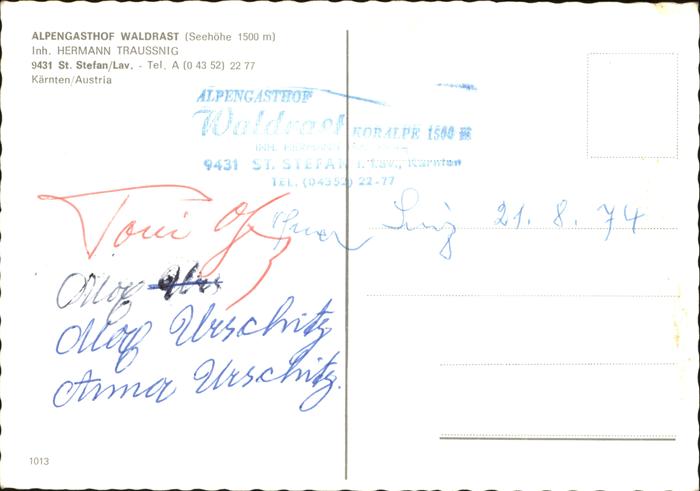 ALPENGASTHOF WALDRAST (Seehöhe 1500 m)
Inh. HERMANN TRAUSSNIG
9431 St. Stefan/Lav. - Tel. A (0 43 52) 22 77
Kärnten/Austria
ALPENGASTHOF
Waldrast KORALPE 1500 m
INH. HERMANN
9431 ST. STEFAN i. Lav., Kärnten
TEL. (04352) 22-77
Toni
21. 8. 74
Urschitz
Anna Urschitz.
1013